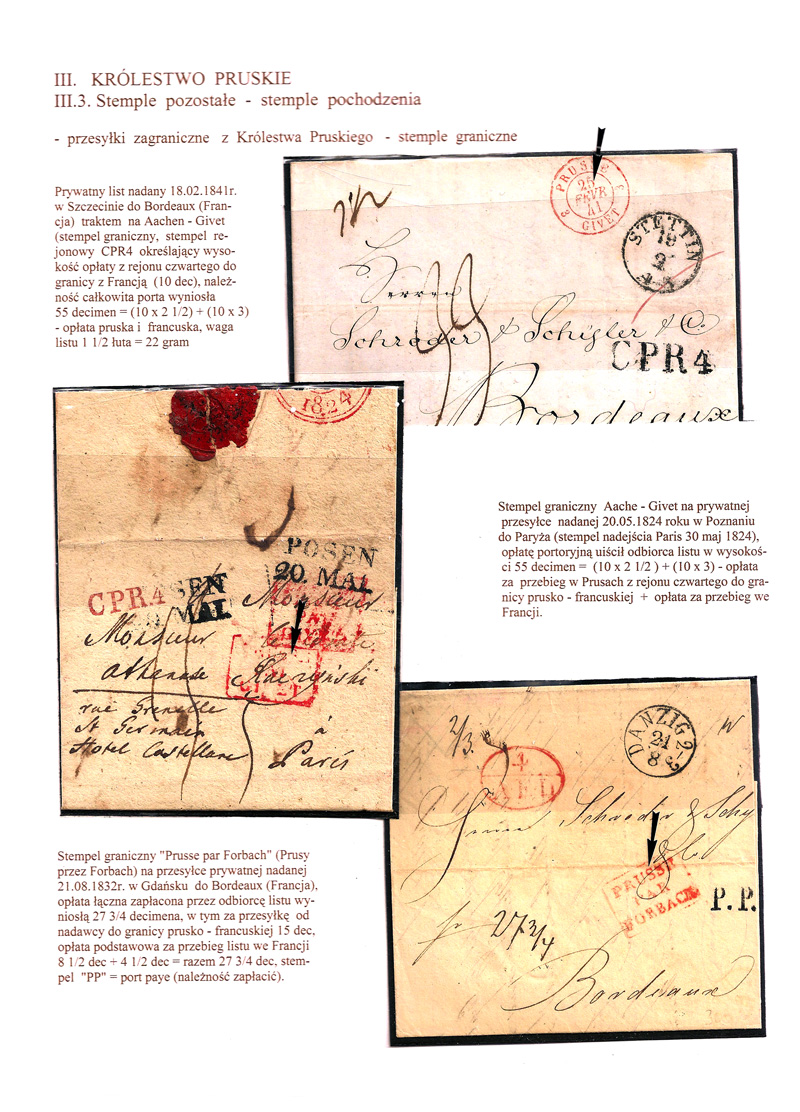 III. KRÓLESTWO PRUSKIE
III.3. Stemple pozostałe - stemple pochodzenia
- przesyłki zagraniczne z Królestwa Pruskiego - stemple graniczne
Prywatny list nadany 18.02.1841r.
w Szczecinie do Bordeaux (Fran-
cja) traktem na Aachen - Givet
(stempel graniczny, stempel re-
jonowy CPR4 określający wyso-
kość opłaty z rejonu czwartego do
granicy z Francją (10 dec), należ-
ność całkowita porta wyniosła
55 decimen = (10 x 2 1/2) + (10 x 3)
- opłata pruska i francuska, waga
listu 1 1/2 łuta = 22 gram
PRUSSE
25
FEVR
41
GIVET
STETTIN
Herren
Schröder & Schÿler & Co.
CPR4
Bordeaux
1824
POSEN
20. MAI
CPR4
SEN
MAI.
Monsieur
Monsieur
Athanase Raczyński
rue Grenelle
St Germain
à
Hotel Castellane
Paris
Stempel graniczny Aache - Givet na prywatnej
przesyłce nadanej 20.05.1824 roku w Poznaniu
do Paryża (stempel nadejścia Paris 30 maj 1824),
opłatę portoryjną uiścił odbiorca listu w wysokoś-
ci 55 decimen = (10 x 2 1/2 ) + (10 x 3) - opłata
za przebieg w Prusach z rejonu czwartego do gra-
nicy prusko - francuskiej + opłata za przebieg we
Francji.
Stempel graniczny "Prusse par Forbach" (Prusy
przez Forbach) na przesyłce prywatnej nadanej
21.08.1832r. w Gdańsku do Bordeaux (Francja),
opłata łączna zapłacona przez odbiorcę listu wy-
niosłą 27 3/4 decimena, w tym za przesyłkę od
nadawcy do granicy prusko - francuskiej 15 dec,
opłata podstawowa za przebieg listu we Francji
8 1/2 dec + 4 1/2 dec = razem 27 3/4 dec, stem-
pel "PP" = port paye (należność zapłacić).
2/3.
DANZIG
21
8
4
A.E.D.
PRUSSE
PAR
FORBACH
P.P.
27 3/4
Bordeaux